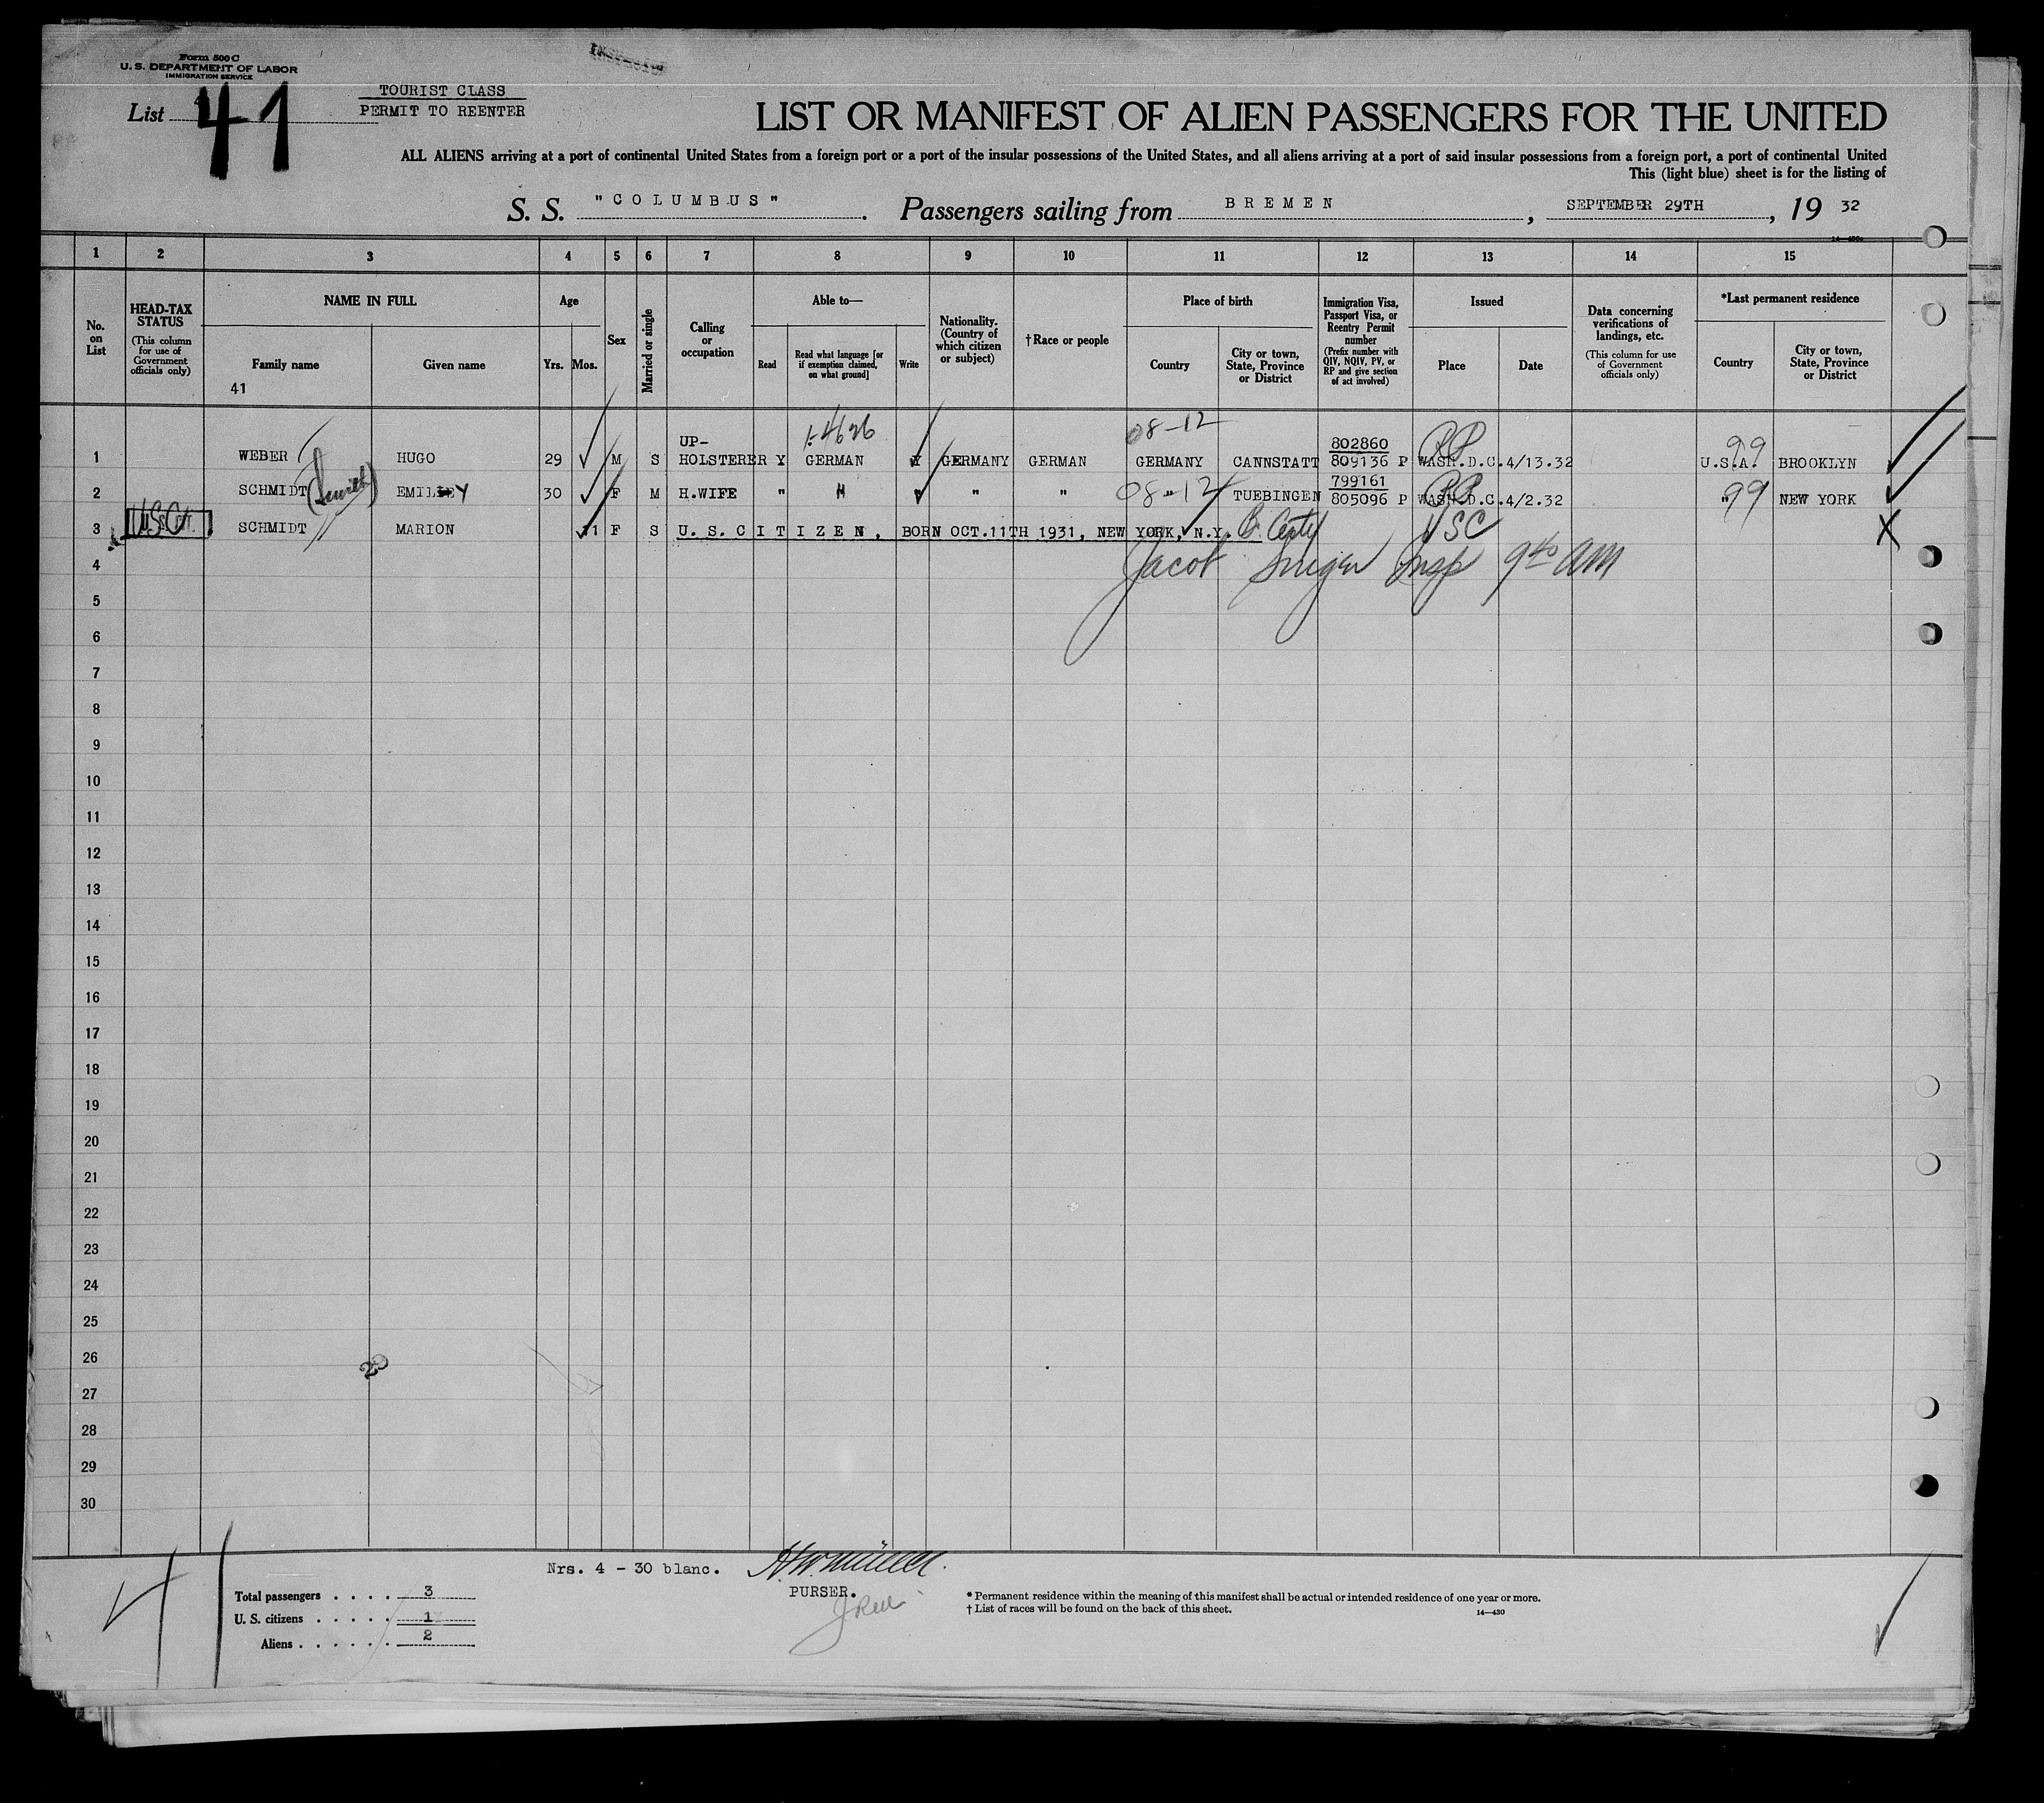 Form 500 C
U. S. DEPARTMENT OF LABOR
IMMIGRATION SERVICE
List 41
TOURIST CLASS
PERMIT TO REENTER
LIST OR MANIFEST OF ALIEN PASSENGERS FOR THE UNITED
ALL ALIENS arriving at a port of continental United States from a foreign port or a port of the insular possessions of the United States, and all aliens arriving at a port of said insular possessions from a foreign port, a port of continental United
This (light blue) sheet is for the listing of
S. S. "COLUMBUS". Passengers sailing from BREMEN, SEPTEMBER 29TH, 19 32
1 2 3 4 5 6 7 8 9 10 11 12 13 14 15
No. on List
HEAD-TAX STATUS
(This column for use of Government officials only)
NAME IN FULL
Family name
41
Given name
Age
Yrs. Mos.
Sex
Married or single
Calling or occupation
Able to—
Read
Read what language [or if exemption claimed, on what ground]
Write
Nationality. (Country of which citizen or subject)
† Race or people
Place of birth
Country
City or town, State, Province or District
Immigration Visa, Passport Visa, or Reentry Permit number
(Prefix number with QIV, NQIV, PV, or RP and give section of act involved)
Issued
Place
Date
Data concerning verifications of landings, etc.
(This column for use of Government officials only)
*Last permanent residence
Country
City or town, State, Province or District
UP- 1-4626 08-12 802860 RP 99
1 WEBER HUGO 29 M S HOLSTERER Y GERMAN Y GERMANY GERMAN GERMANY CANNSTATT 809136 P WASH.D.C. 4/13.32 U.S.A. BROOKLYN
799161 RP
2 SCHMIDT (Smith) EMILIE Y 30 F M H.WIFE " " " " " 08-12 " TUEBINGEN 805096 P WASH.D.C. 4/2.32 " 99 NEW YORK
3 USC SCHMIDT MARION 11 F S U.S.CITIZEN, BORN OCT.11TH 1931, NEW YORK, N.Y. USC
4 Jacob Insp 9 40 AM
5
6
7
8
9
10
11
12
13
14
15
16
17
18
19
20
21
22
23
24
25
26
27
28
29
30
Nrs. 4 - 30 blanc.
PURSER.
41
Total passengers . . . . 3
U. S. citizens . . . . . 1
Aliens . . . . . . 2
* Permanent residence within the meaning of this manifest shall be actual or intended residence of one year or more.
† List of races will be found on the back of this sheet.
14—430